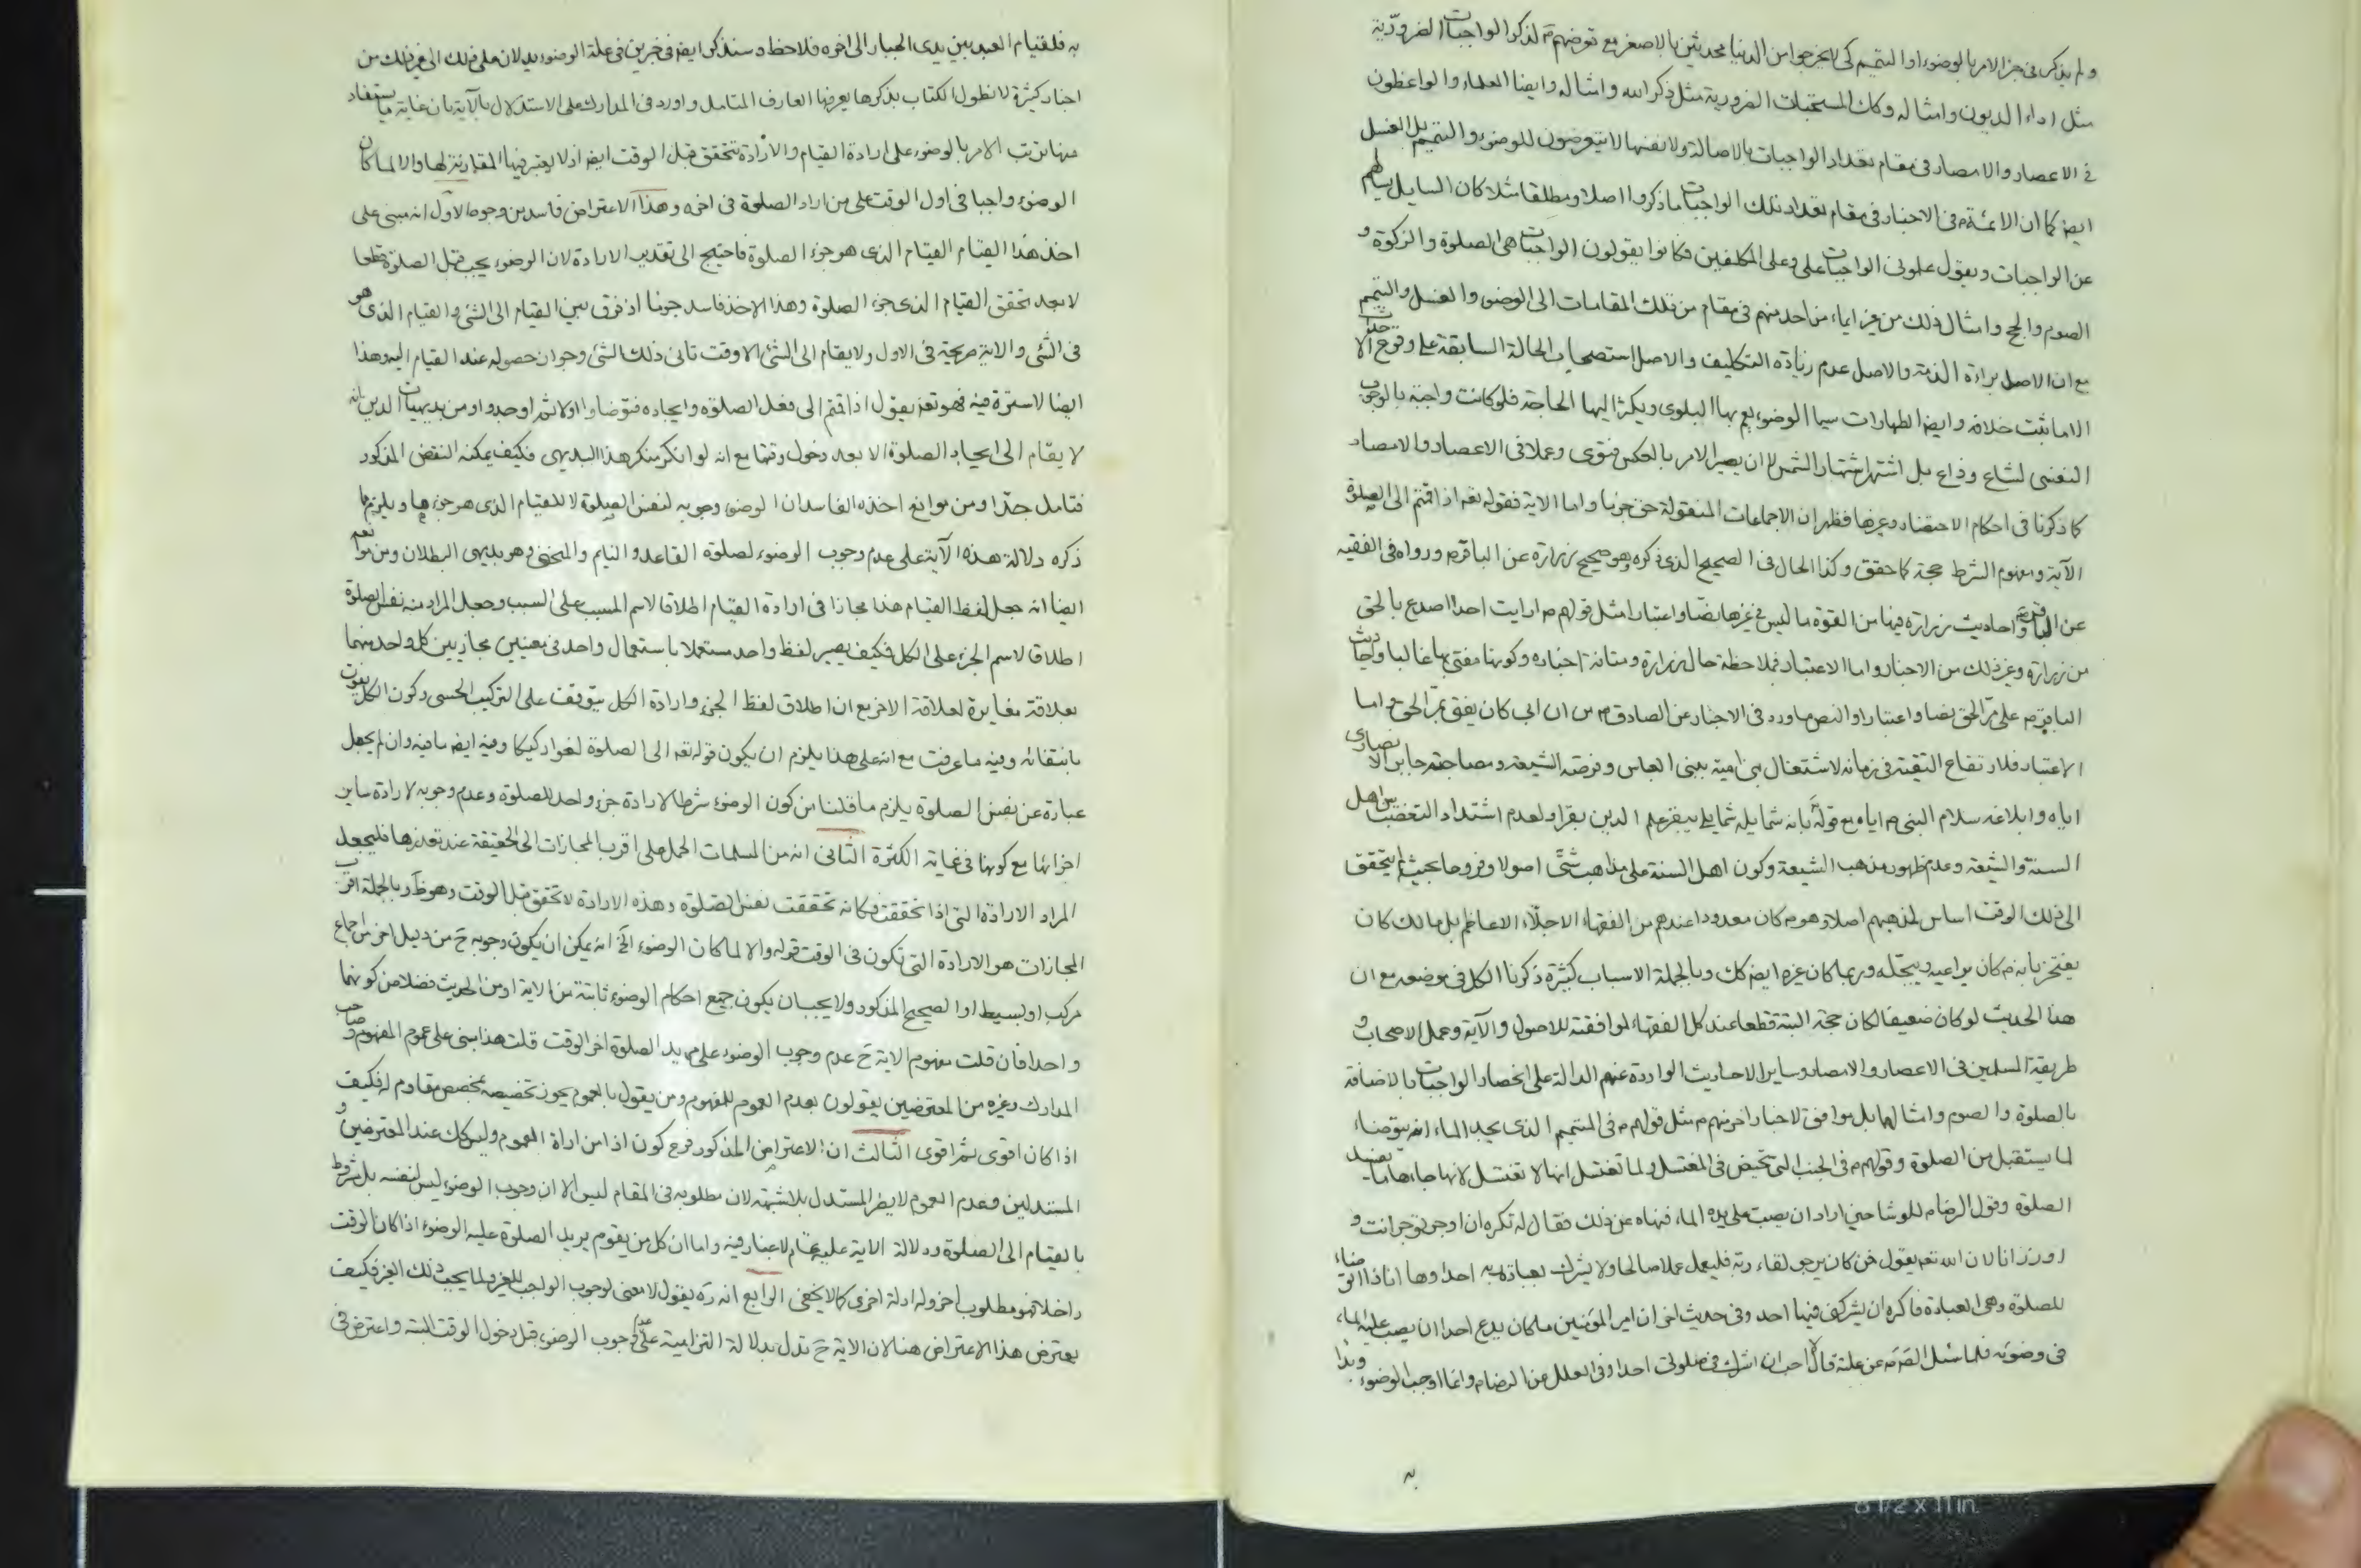 ولم يذكر في خبر الامر بالوضوء او التيمم كي لا يخرجوا من الدنيا محدثين بالاصغر مع توضهم لذكر الواجبات الضرورية
مثل اداء الديون وامثاله وكك المستحبات الضرورية مثل ذكر الله وامثاله وايضا العلماء والواعظون
في الاعصار والامصار في مقام تعداد الواجبات بالاصالة ولانفسها لا يتعرضون للوضوء والتيمم بل الغسل
ايضا كما ان الائمة في الاخبار في مقام تعداد تلك الواجبات ما ذكروا اصلا ومطلقا مثلا كان السايل يسالهم
عن الواجبات ويقول علموني الواجبات علي وعلى المكلفين فكانوا يقولون الواجبات هي الصلوة والزكوة و
الصوم والحج وامثال ذلك من غير ايماء من احد منهم في مقام من تلك المقامات الى الوضوء والغسل والتيمم
مع ان الاصل براءة الذمة والاصل عدم زيادة التكليف والاصل استصحاب الحالة السابقة على وقوع الاحداث
الا ما ثبت خلافه وايضا الطهارات سيما الوضوء يعم بها البلوى ويكثر اليها الحاجة فلو كانت واجبة بالوجوب
النفسي لشاع وذاع بل اشتهر اشتهار الشمس لا ان يصير الامر بالعكس فتوى وعملا في الاعصار والامصار
كما ذكرنا في احكام الاحتضار وغيرها فظهر ان الاجماعات المنقولة حق جزما واما الاية فقوله تعم اذا قمتم الى الصلوة
الآية ومفهوم الشرط حجة كما حقق وكذا الحال في الصحيح الذي ذكره وهو صحيح زرارة عن الباقر م ورواه في الفقيه
عن الباقر م واحاديث زرارة فيها من القوة ما ليس في غيرها نصا واعتبارا مثل قولهم م ما رايت احدا اصدع بالحق
من زرارة وغير ذلك من الاخبار واما الاعتبار فملاحظة حال زرارة ومتانة اخباره وكونها مفتى بها غالبا واحاديث
الباقر م على مر الحق نصا واعتبارا والنص ما ورد في الاخبار عن الصادق م من ان ابي كان يفتي بمر الحق واما
الاعتبار فلارتفاع التقية في زمانه لاشتغال بني امية ببني العباس وفرصة الشيعة ومصاحبة جابر الانصاري
اياه وابلاغه سلام النبي م اياه مع قوله بانه شمايله شمايلي يبقر علم الدين بقرا ولعدم اشتداد التعصب بين اهل
السنة والشيعة وعدم ظهور مذهب الشيعة وكون اهل السنة على مذاهب شتى اصولا وفروعا بحيث لم يتحقق
الى ذلك الوقت اساس لمذهبهم اصلا وهو م كان معدودا عندهم من الفقهاء الاجلاء الاعاظم بل مالك كان
يفتخر بانه م كان يراعيه ويبجله وربما كان غيره ايضا كك وبالجملة الاسباب كثيرة ذكرنا الكل في موضعه مع ان
هذا الحديث لو كان ضعيفا لكان حجة البتة قطعا عند كل الفقهاء لموافقته للاصول والآية وعمل الاصحاب و
طريقة المسلمين في الاعصار والامصار وساير الاحاديث الواردة عنهم الدالة على انحصار الواجبات بالاضافة
بالصلوة والصوم وامثالهما بل موافق لاخبار اخر منهم م مثل قولهم م في المتيمم الذي يجد الماء انه يتوضاء
لما يستقبل من الصلوة وقولهم م في الجنب التي تحيض في المغتسل ولما تغتسل انها لا تغتسل لانها جاءها ما يفسد
الصلوة وقول الرضا م للوشا حين اراد ان يصب على يده الماء فنهاه عن ذلك فقال له تكره ان اوجر توجر انت و
اوزر انا لان الله تعم يقول فمن كان يرجو لقاء ربه فليعمل عملا صالحا ولا يشرك بعبادة ربه احدا وها انا ذا اتوضاء
للصلوة وهي العبادة فاكره ان يشركني فيها احد وفي حديث اخر ان امير المؤمنين م ما كان يدع احدا ان يصب عليه الماء
في وضوئه فلما سئل م عن علته قال لا احب ان اشرك في صلوتي احدا وفي العلل عن الرضا م وانما اوجب الوضوء وبدا
به
به فلقيام العبد بين يدى الجبار الى اخره فلاحظ وسنذكر ايضا في خبرين في علة الوضوء يدلان على ذلك الى غير ذلك من
اخبار كثيرة لا نطول الكتاب بذكرها يعرفها العارف المتامل واورد في المدارك على الاستدلال بالآية بان غاية ما يستفاد
منها ترتب الامر بالوضوء على ارادة القيام والارادة تتحقق قبل الوقت ايضا اذ لا يعتبر فيها المقارنة لها والا لما كان
الوضوء واجبا في اول الوقت على من اراد الصلوة في اخره وهذا الاعتراض فاسد من وجوه الاول انه مبني على
اخذ هذا القيام القيام الذي هو جزء الصلوة فاحتيج الى تقدير الارادة لان الوضوء يجب قبل الصلوة قطعا
لا بعد تحقق القيام الذي جزء الصلوة وهذا الاخذ فاسد جزما اذ فرق بين القيام الى الشئ والقيام الذي هو
في الشئ والاية صريحة في الاول ولا يقام الى الشئ الا وقت تاتي ذلك الشئ وجواز حصوله عند القيام اليه وهذا
ايضا لا سترة فيه فهو تعم يقول اذا قمتم الى فعل الصلوة وايجاده فتوضاوا اولا ثم اوجدوا ومن بديهيات الدين انه
لا يقام الى ايجاد الصلوة الا بعد دخول وقتها مع انه لو انكر منكر هذا البديهي فكيف يمكنه النقض المذكور
فتامل جدا ومن موانع اخذه الفاسد ان الوضوء وجوبه لنفس الصلوة لا للقيام الذي هو جزءها ويلزم مما
ذكره دلالة هذه الآية على عدم وجوب الوضوء لصلوة القاعد والنايم والمنحني وهو بديهي البطلان ومن موانعه
ايضا انه جعل لفظ القيام هنا مجازا في ارادة القيام اطلاقا لاسم المسبب على السبب وجعل المراد منه نفس الصلوة
اطلاقا لاسم الجزء على الكل فكيف يصير لفظ واحد مستعملا باستعمال واحد في معنيين مجازيين كل واحد منهما
بعلاقة مغايرة لعلاقة الاخر مع ان اطلاق لفظ الجزء وارادة الكل يتوقف على التركيب الحسي وكون الكل يفوت
بانتفائه وفيه ما عرفت مع انه على هذا يلزم ان يكون قوله تعم الى الصلوة لغوا ركيكا وفيه ايضا ما فيه وان لم يجعل
عبارة عن نفس الصلوة يلزم ما قلنا من كون الوضوء شرطا لارادة جزء واحد للصلوة وعدم وجوبه لارادة ساير
اجزائها مع كونها في غاية الكثرة الثاني انه من المسلمات الحمل على اقرب المجازات الى الحقيقة عند تعذرها فليجعل
المراد الارادة التي اذا تحققت فكانه تحققت نفس الصلوة وهذه الارادة لا تحقق قبل الوقت وهو ظ وبالجملة اقرب
المجازات هو الارادة التي تكون في الوقت قوله والا لما كان الوضوء الخ انه يمكن ان يكون وجوبه ح من دليل اخر من اجماع
مركب او بسيط او الصحيح المذكور ولا يجب ان يكون جميع احكام الوضوء ثابتة من الاية او من الحديث فضلا من كونهما
واحدا فان قلت مفهوم الاية ح عدم وجوب الوضوء على مريد الصلوة اخر الوقت قلت هذا مبني على عموم المفهوم وصاحب
المدارك وغيره من المعترضين يقولون بعدم العموم للمفهوم ومن يقول بالعموم يجوز تخصيصه بمخصص مقاوم له فكيف
اذا كان اقوى ثم اقوى الثالث ان الاعتراض المذكور فرع كون اذا من اداة العموم وليس كك عند المعترضين و
المستدلين وعدم العموم لا يضر المستدل بلا شبهة لان مطلوبه في المقام ليس الا ان وجوب الوضوء ليس لنفسه بل شرط
بالقيام الى الصلوة ودلالة الاية عليه تمام لا غبار فيه واما ان كل من يقوم يريد الصلوة عليه الوضوء اذا كان الوقت
داخلا فهو مطلوب اخر وله ادلة اخرى كما لا يخفى الرابع انه ره يقول لا معنى لوجوب الواجب للغير لما يجب ذلك الغير فكيف
يعترض هذا الاعتراض هنا لان الاية ح تدل بدلالة التزامية على عدم وجوب الوضوء قبل دخول الوقت البتة واعترض في